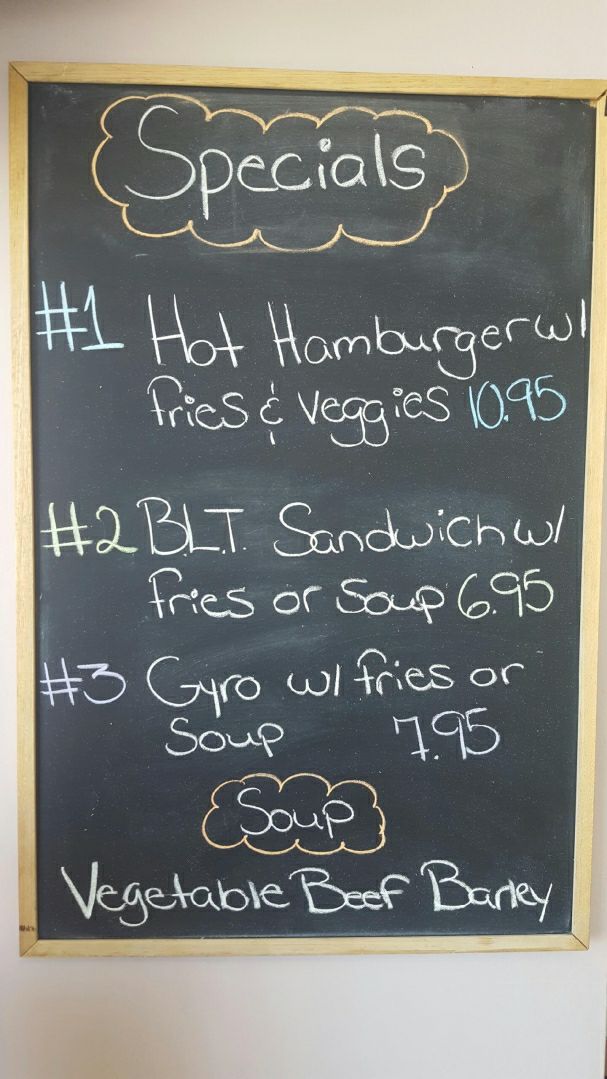 Specials
#1 Hot Hamburger w/
fries & veggies 10.95
#2 B.L.T. Sandwich w/
fries or Soup 6.95
#3 Gyro w/ fries or
Soup 7.95
Soup
Vegetable Beef Barley